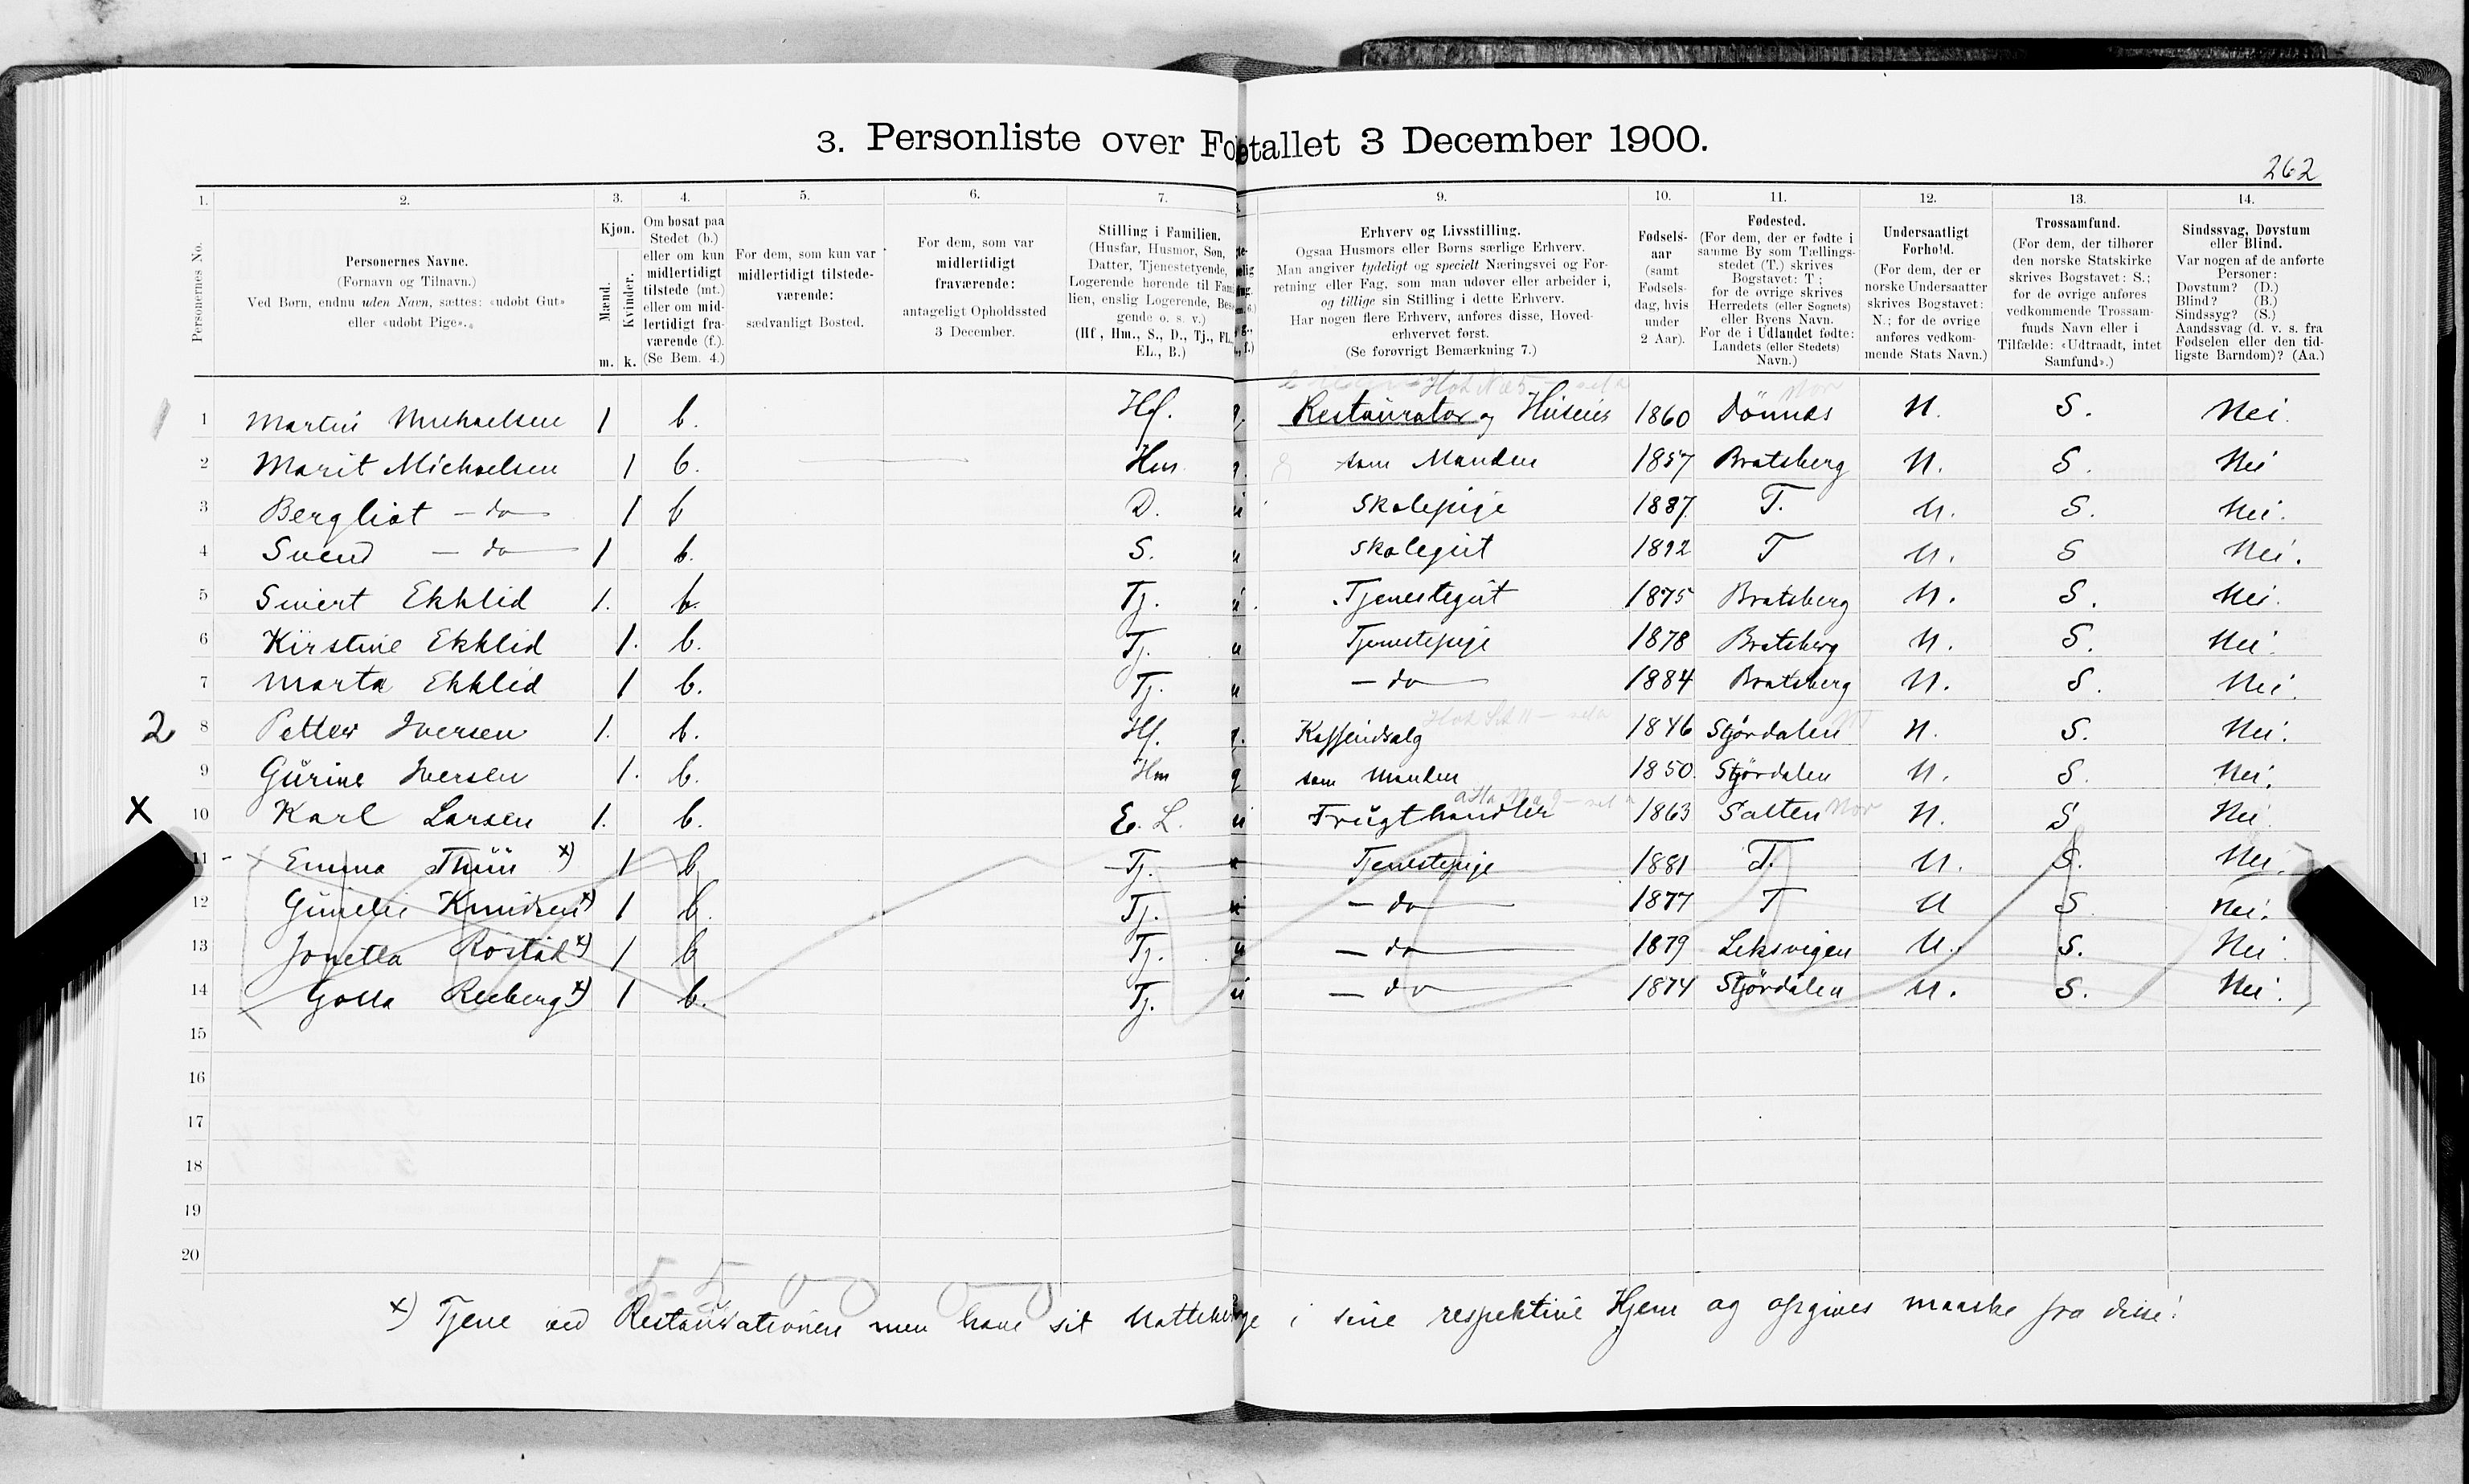 3. Personliste over Folketallet 3 December 1900.
262
1. 2. 3. 4. 5. 6. 7. 9. 10. 11. 12. 13. 14.
Personernes No.
Personernes Navne.
(Fornavn og Tilnavn.)
Ved Børn, endnu uden Navn, sættes: «udøbt Gut»
eller «udøbt Pige».
Kjøn.
Mænd.
Kvinder.
m. k.
Om bosat paa
Stedet (b.)
eller om kun
midlertidigt
tilstede (mt.)
eller om mid-
lertidigt fra-
værende (f.).
(Se Bem. 4.)
For dem, som kun var
midlertidigt tilstede-
værende:
sædvanligt Bosted.
For dem, som var
midlertidigt
fraværende:
antageligt Opholdssted
3 December.
Stilling i Familien.
(Husfar, Husmor, Søn,
Datter, Tjenestetyende,
Logerende hørende til Fami
lien, enslig Logerende, Besø
gende o. s. v.)
(Hf, Hm., S., D., Tj., FL.,
EL., B.)
Erhverv og Livsstilling.
Ogsaa Husmors eller Børns særlige Erhverv.
Man angiver tydeligt og specielt Næringsvei og For-
retning eller Fag, som man udøver eller arbeider i,
og tillige sin Stilling i dette Erhverv.
Har nogen flere Erhverv, anføres disse, Hoved-
erhvervet først.
(Se forøvrigt Bemærkning 7.)
Fødsels-
aar
(samt
Fødsels-
dag, hvis
under
2 Aar).
Fødested.
(For dem, der er fødte i
samme By som Tællings-
stedet (T.) skrives
Bogstavet: T;
for de øvrige skrives
Herredets (eller Sognets)
eller Byens Navn.
For de i Udlandet fødte:
Landets (eller Stedets)
Navn.)
Undersaatligt
Forhold.
(For dem, der er
norske Undersaatter
skrives Bogstavet:
N.; for de øvrige
anføres vedkom-
mende Stats Navn.)
Trossamfund.
(For dem, der tilhører
den norske Statskirke
skrives Bogstavet: S.;
for de øvrige anføres
vedkommende Trossam-
funds Navn eller i
Tilfælde: «Udtraadt, intet
Samfund».)
Sindssvag, Døvstum
eller Blind.
Var nogen af de anførte
Personer:
Døvstum? (D.)
Blind? (B.)
Sindssyg? (S.)
Aandssvag (d. v. s. fra
Fødselen eller den tid-
ligste Barndom)? (Aa.)
1 1 Martin Michaelsen 1 b. Hf. g. Restauratør og Huseier 1860 Dönnes N. S. Nei.
2 Marit Michaelsen 1 b. Hm. g. som Manden 1857 Bratsberg N. S. Nei
3 Bergliot - do 1 b D. u Skolepige 1887 T. N. S. Nei.
4 Svend - do 1 b. S. u Skolegut 1892 T N. S Nei.
5 Sivert Ekhlid 1. b. Tj. u. Tjenestegut 1875 Bratsberg N. S. Nei.
6 Kirstine Ekhlid 1. b. Tj. u Tjenestepige 1878 Bratsberg N. S. Nei.
7 Marta Ekhlid 1 b. Tj. u - do 1884 Bratsberg N. S. Nei.
2 8 Petter Iversen 1. b. Hf. g. Kaffeudsalg 1846 Stjørdalen N. S. Nei.
9 Gurine Iversen 1. b. Hm g som Manden 1850. Stjørdalen N. S. Nei.
x 10 Karl Larsen 1. b. E. L. u Frugthandler 1863 Salten N. S Nei
11 - Emma Thun x) 1 b Tj. Tjenestepige 1881 T. N. S. Nei.
12 Gunelie Knudsen x) 1 b. Tj. - do 1877 T N S Nei.
13 Jonetta Rostad x) 1 b Tj. u - do 1879 Leksvigen N. S. Nei.
14 Golla Reeberg x) 1 b. Tj. u - do 1874 Stjørdalen N. S. Nei.
15
16
17
18
19
20
5 - 5 0 0 0 0
x) Tjene ved Restaurationen men have sit Natteherberge i sine respektive Hjem og opgives maaske fra disse!